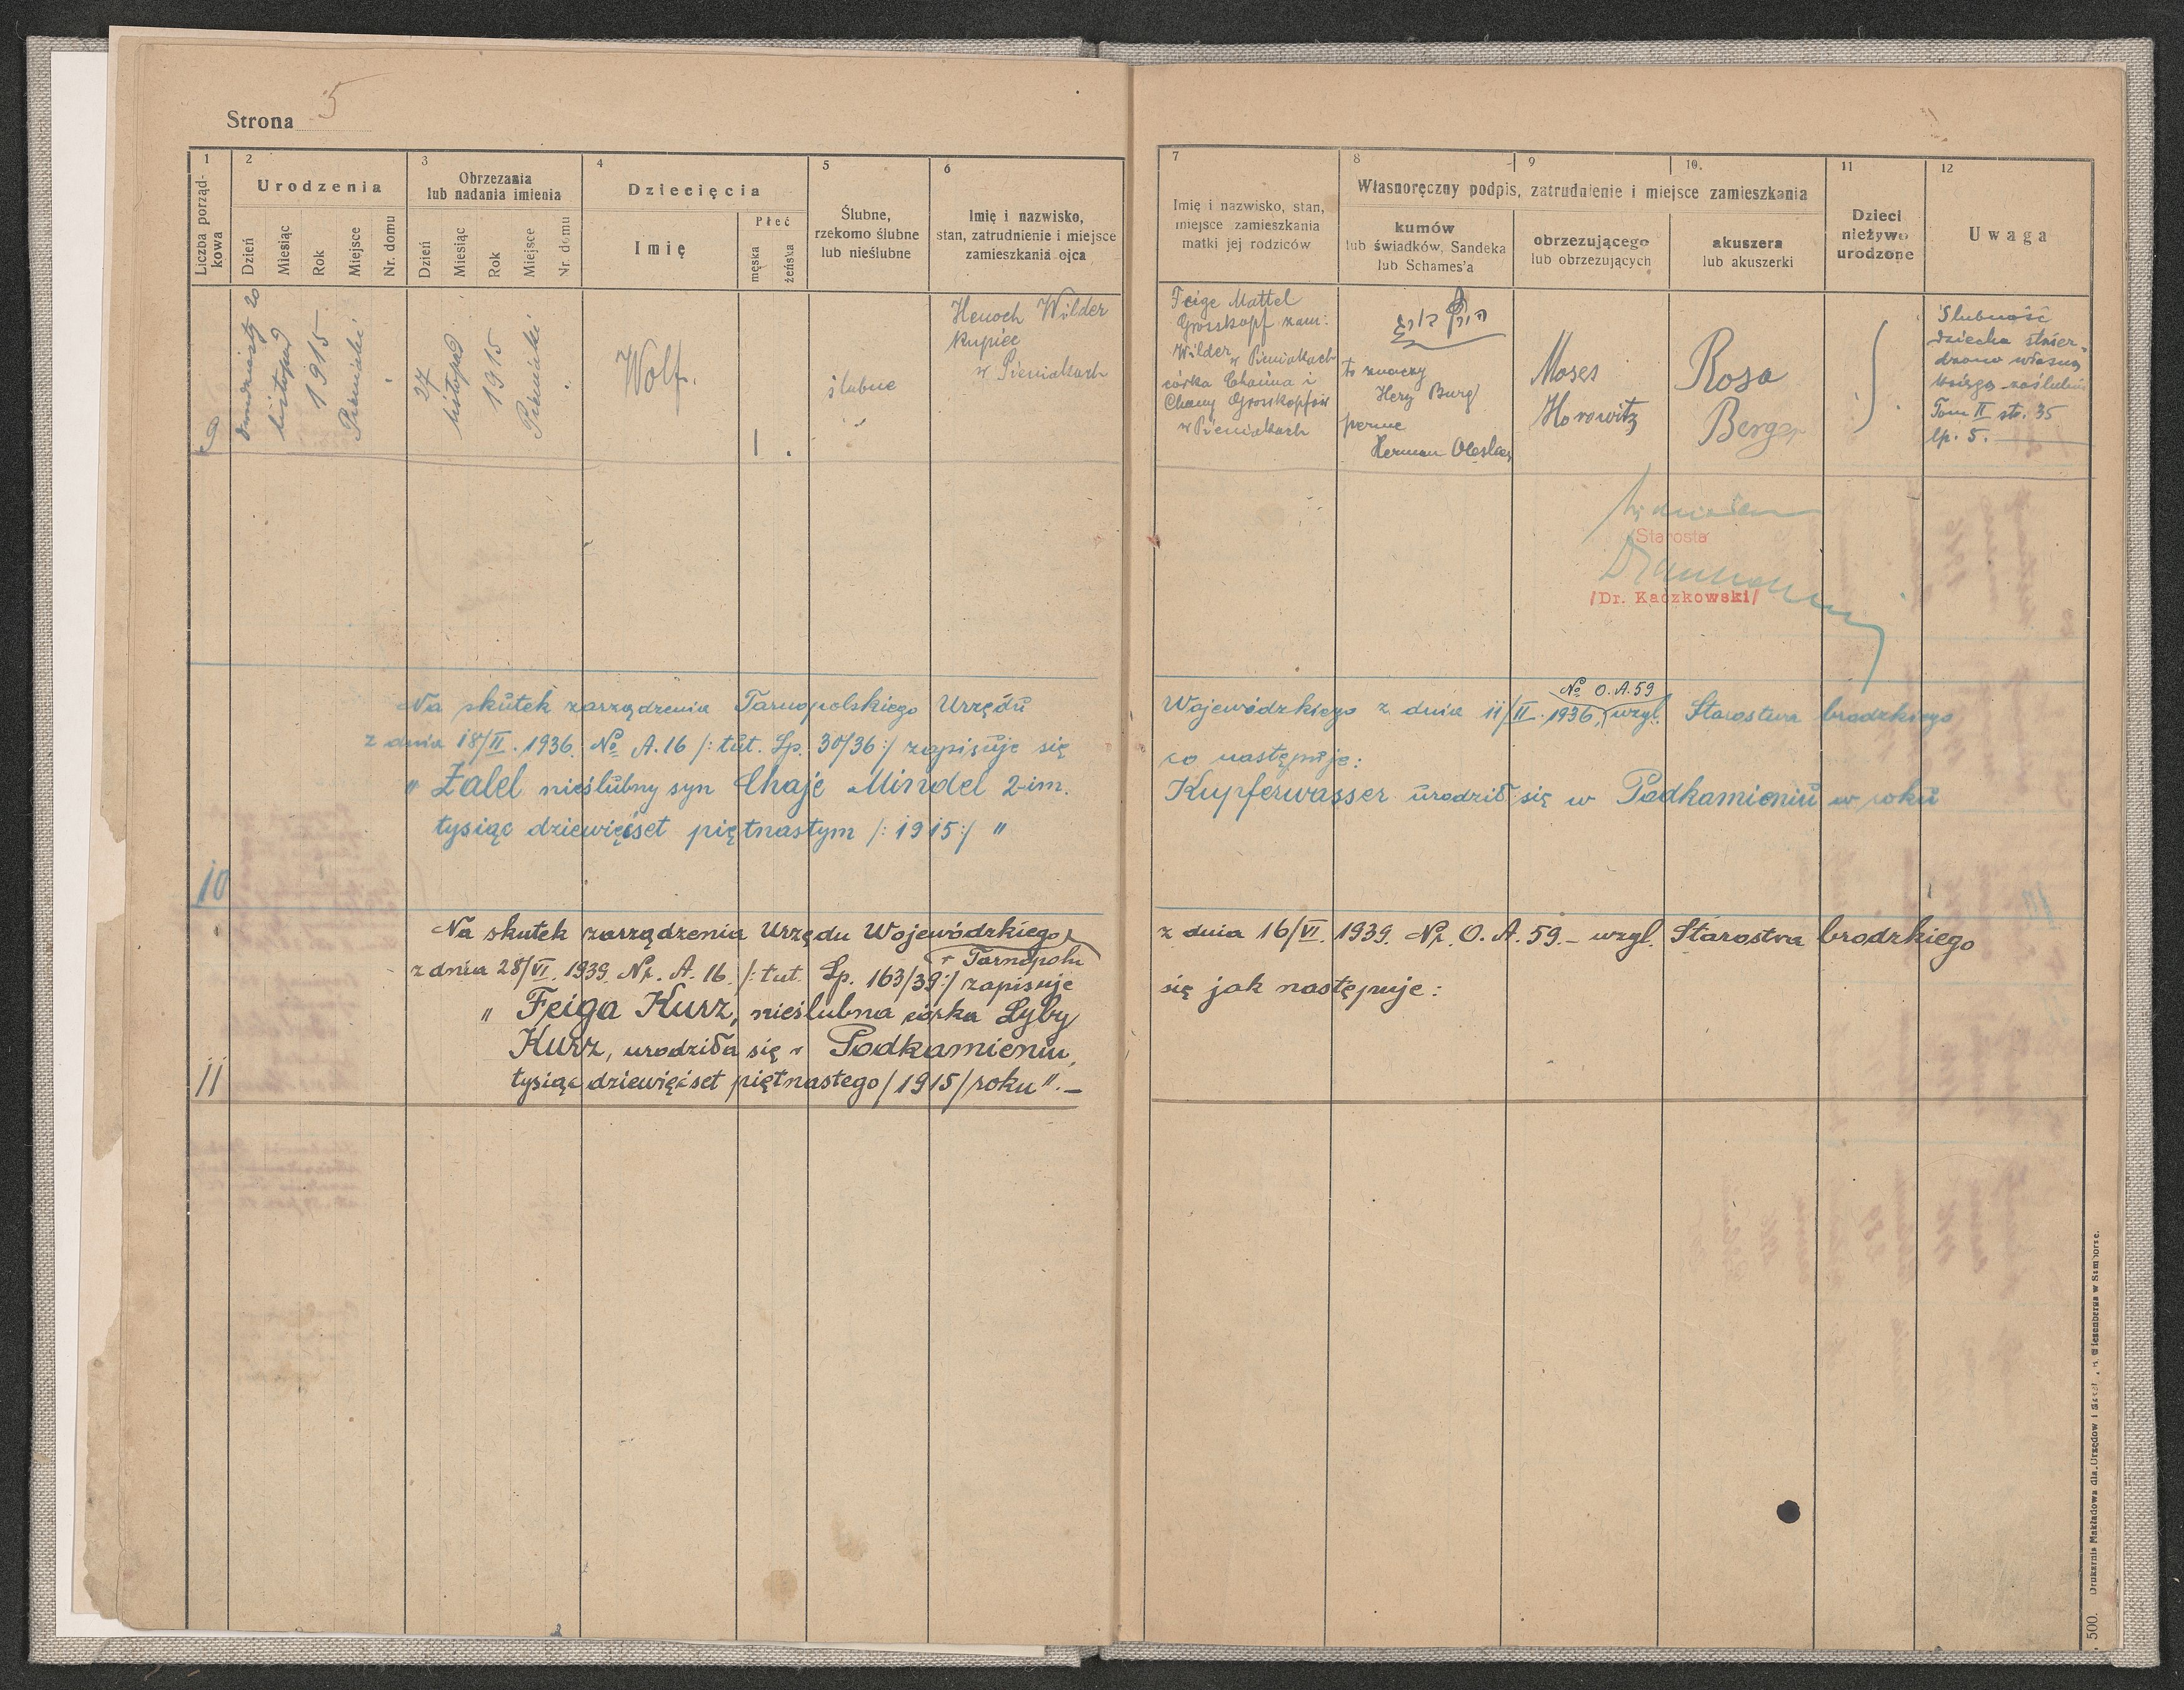 Strona 5
1
2
3
4
5
6
Liczba porząd-
kowa
Urodzenia
Dzień
Miesiąc
Rok
Miejsce
Nr. domu
Obrzezania
lub nadania imienia
Dzień
Miesiąc
Rok
Miejsce
Nr. domu
Dziecięcia
Imię
Płeć
męska
żeńska
Ślubne,
rzekomo ślubne
lub nieślubne
Imię i nazwisko,
stan, zatrudnienie i miejsce
zamieszkania ojca
7
8
9
10.
11
12
Imię i nazwisko, stan,
miejsce zamieszkania
matki jej rodziców
Własnoręczny podpis, zatrudnienie i miejsce zamieszkania
kumów
lub świadków, Sandeka
lub Schames'a
obrzezującego
lub obrzezujących
akuszera
lub akuszerki
Dzieci
nieżywo
urodzone
Uwaga
9
dwudziesty 20
listopad
1915
Pieniaki
27
listopad
1915
Pieniaki
Wolf.
1
ślubne
Henoch Wilder
kupiec
w Pieniakach
Feige Mattel
Grosskopf zam.
Wilder w Pieniakach
córka Chaima i
Chany Grosskopfów
w Pieniakach
to znaczy
Herz Burg
Herman
Moses
Horowitz
Rosa
Berger
Ślubność
dziecka stwier-
dzono własną
księgą zaślubin
Tom II str. 35
lp. 5.
Starosta
/Dr. Kaczkowski/
10
Na skutek zarządzenia Tarnopolskiego Urzędu Wojewódzkiego z dnia 11/II. 1936, No O.A.59 wzgl. Starostwa brodzkiego
z dnia 18/II. 1936. No A.16 /: tut. Lp. 30/36:/ zapisuje się co następuje:
" Zalel nieślubny syn Chaje Mindel 2-im. Kupferwasser urodził się w Podkamieniu w roku
tysiąc dziewięćset piętnastym /: 1915:/ "
11
Na skutek zarządzenia Urzędu Wojewódzkiego w Tarnopolu z dnia 16/VI. 1939. Nr. O. A. 59. - wzgl. Starostwa brodzkiego
z dnia 28/VI. 1939. Nr. A. 16. /: tut. Lp. 163/39:/ zapisuje się jak następuje:
" Feiga Kurz, nieślubna córka Lyby
Kurz, urodziła się w Podkamieniu,
tysiąc dziewięćset piętnastego /1915/ roku". -
500. Drukarnia Nakładowa dla Urzędów i Szkół
w Samborze.